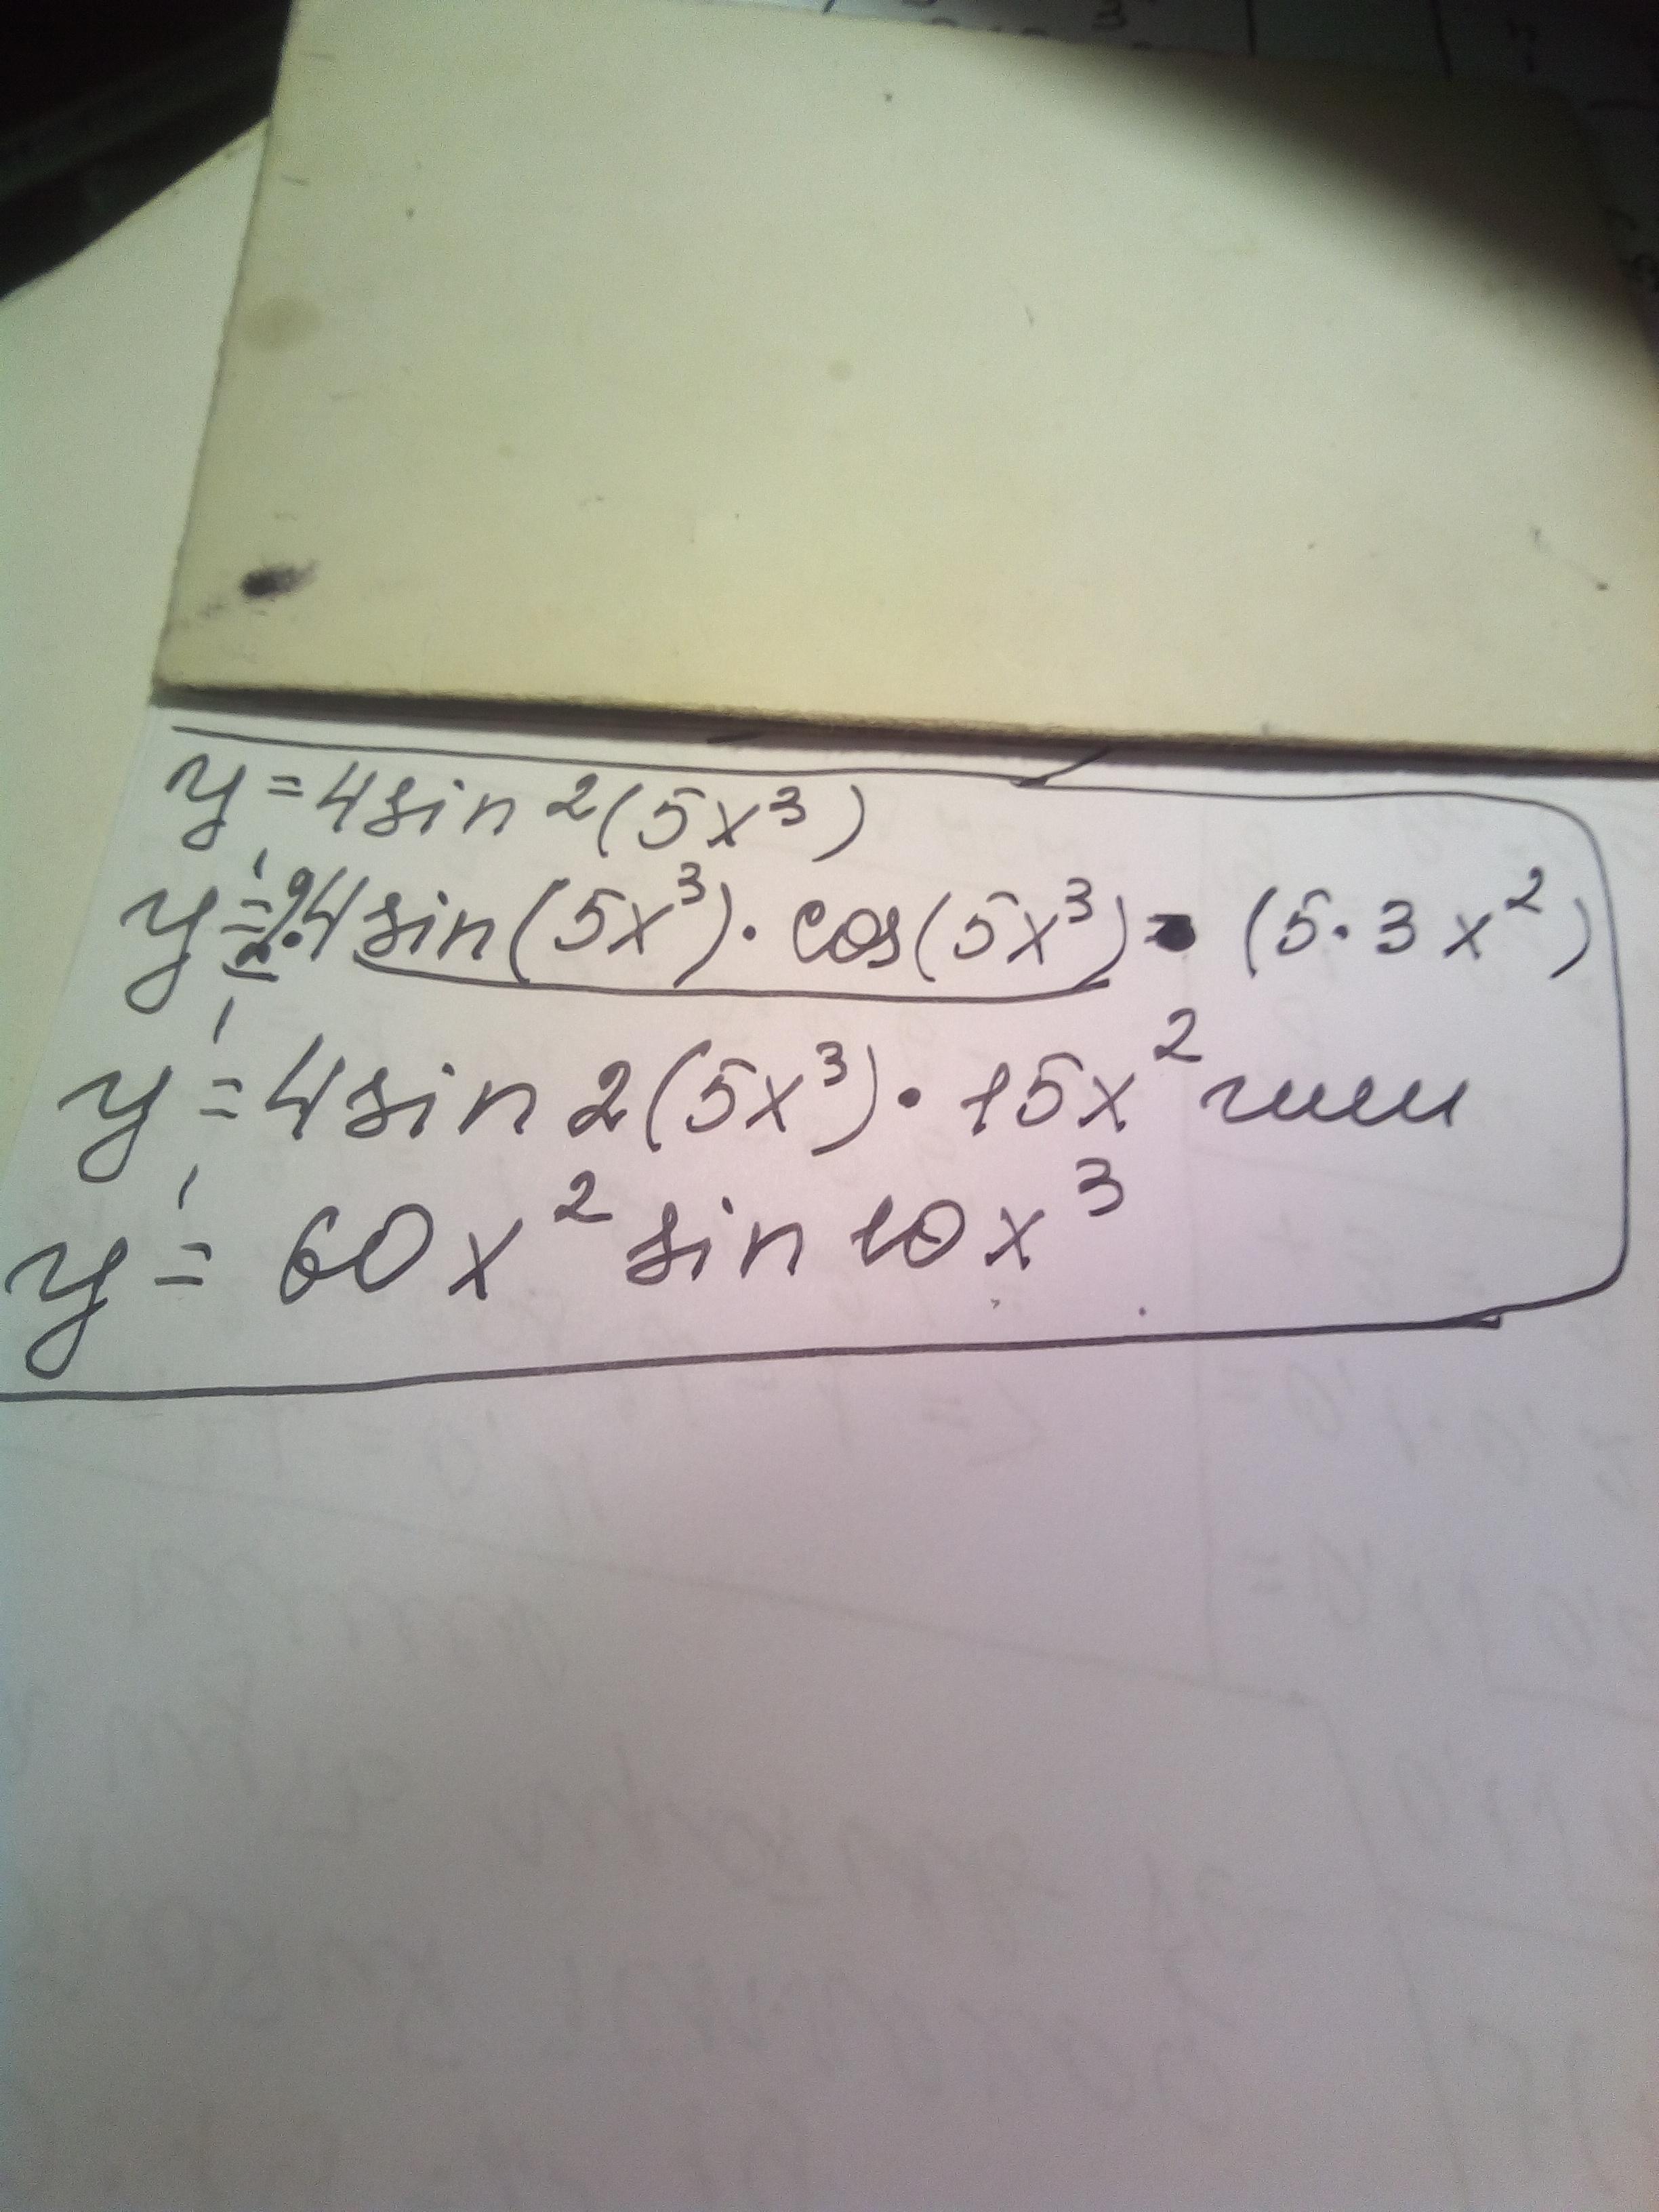 y = 4 sin 2(5x³)
y' = 2·4 sin(5x³) · cos(5x³) · (5·3x²)
y' = 4 sin 2(5x³) · 15x² или
y' = 60x² sin 10x³